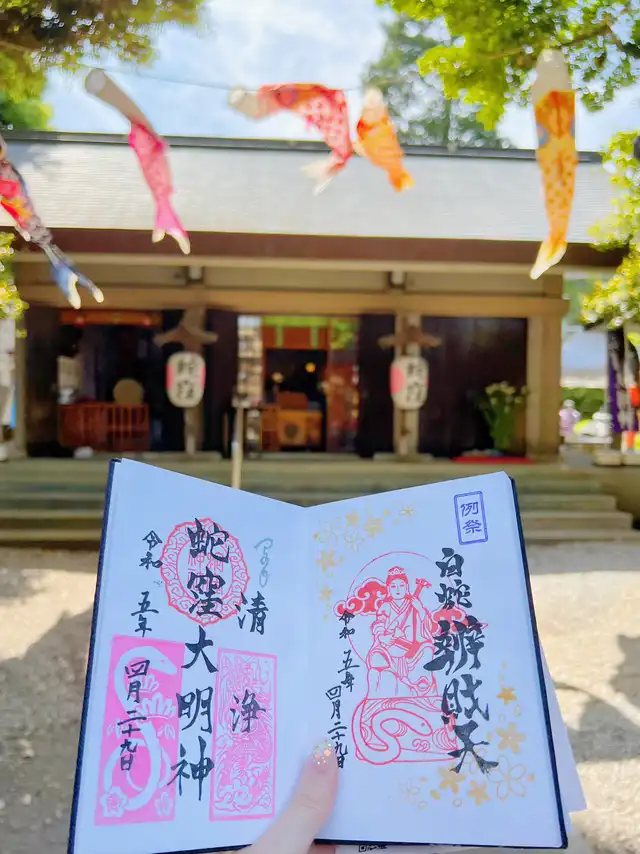 蛇窪
蛇窪
例祭
白蛇辨財天
令和五年四月二十九日
清浄
蛇窪大明神
令和五年
四月二十九日